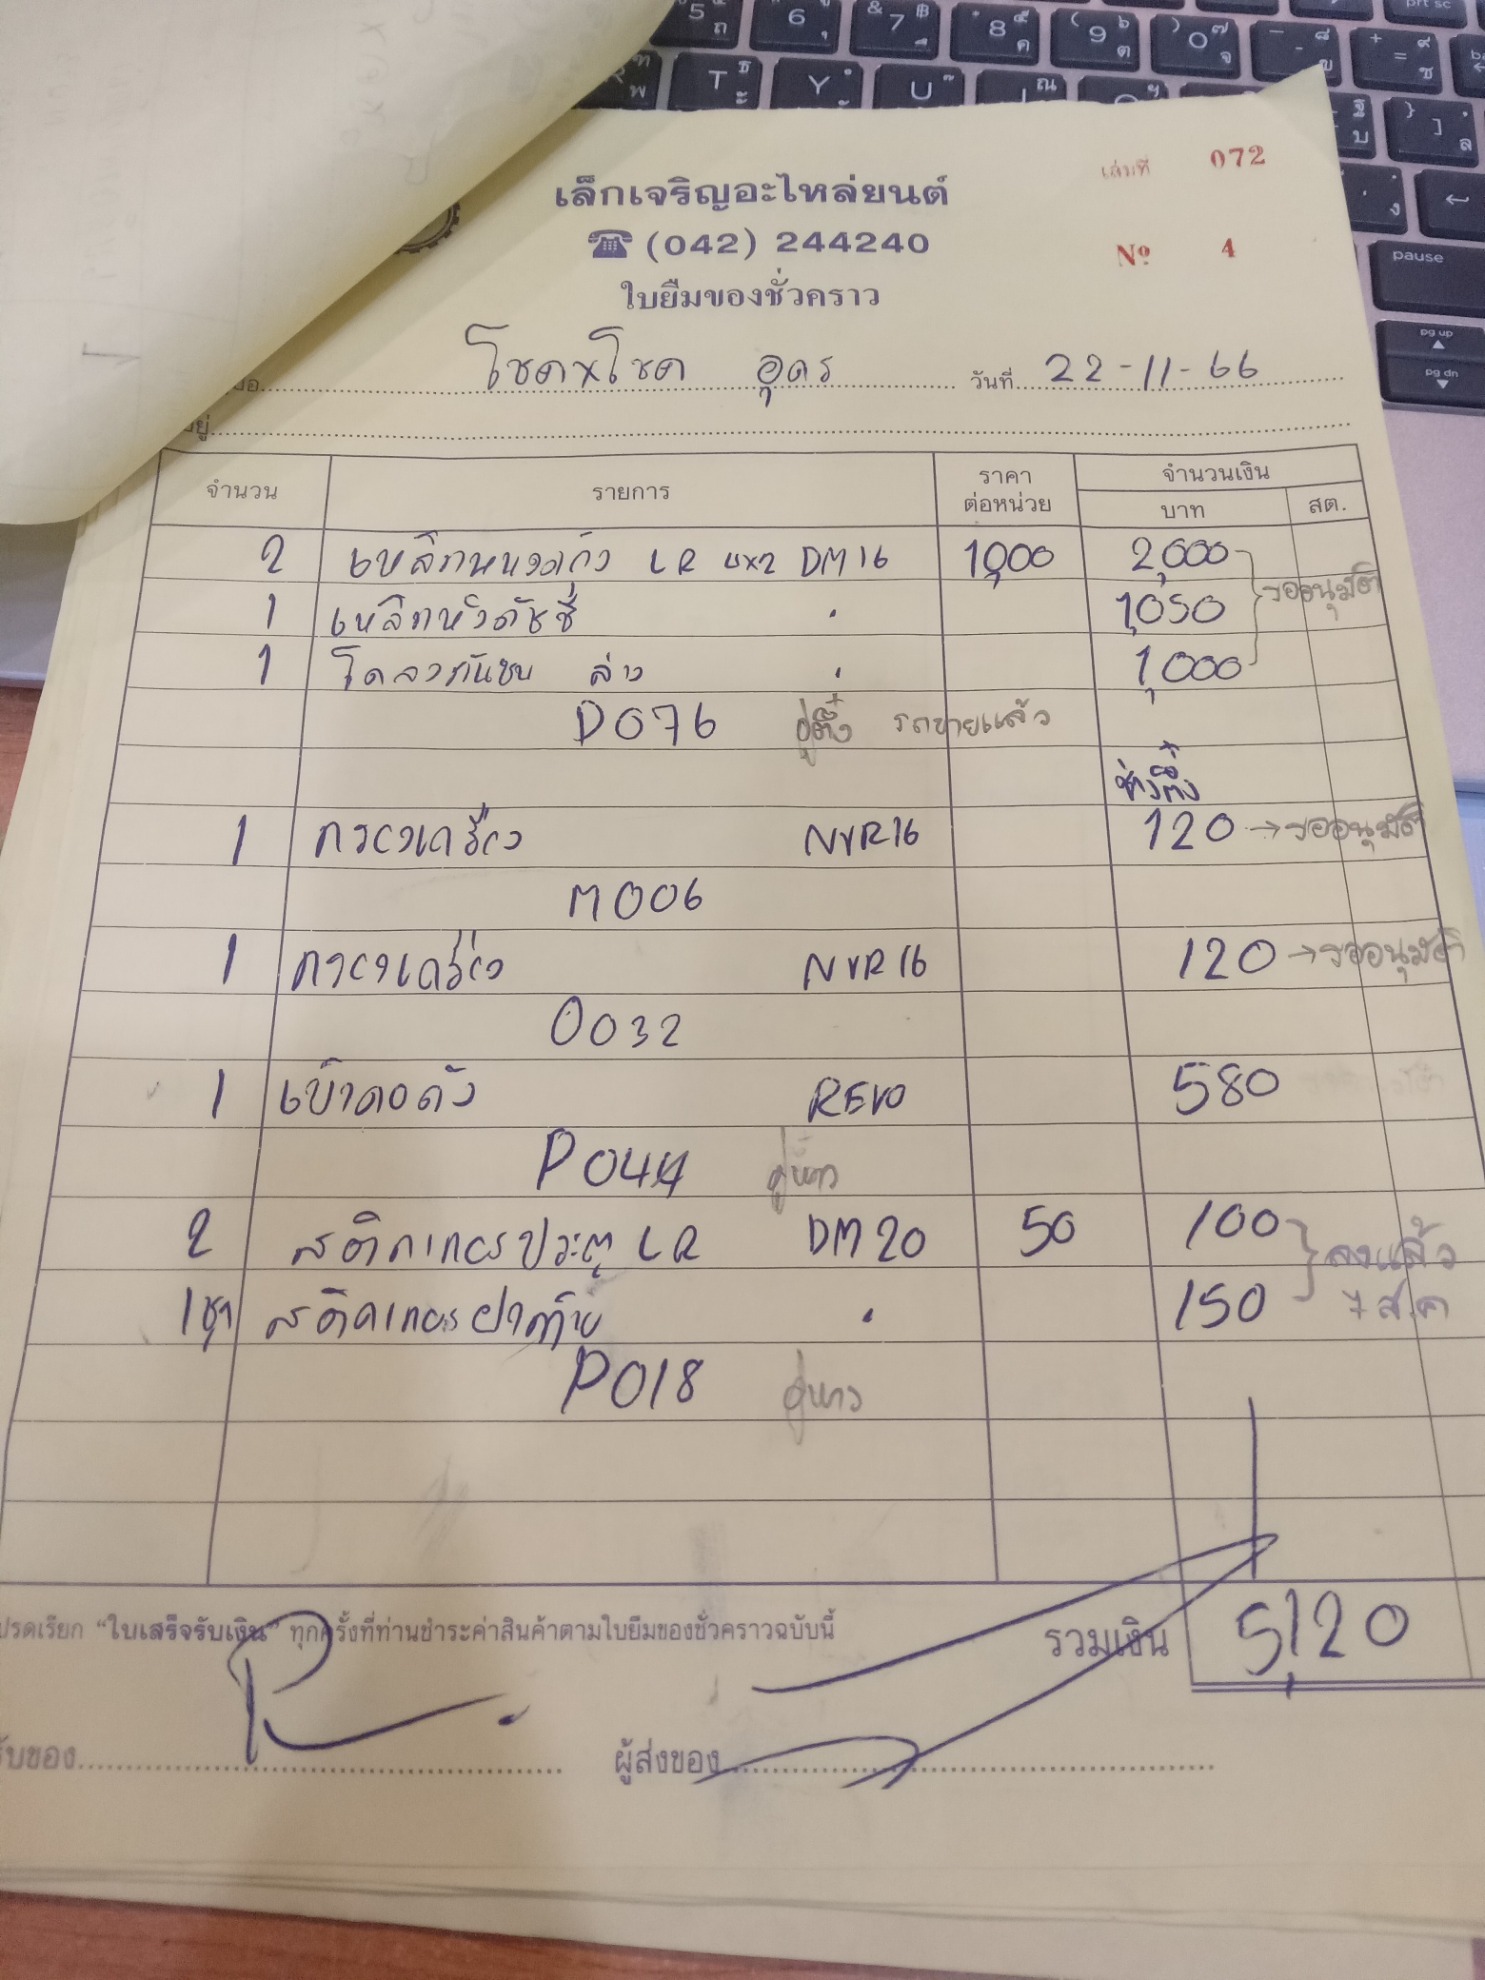 เล่มที่ 072
เล็กเจริญอะไหล่ยนต์
(042) 244240
Nº 4
ใบยืมของชั่วคราว
โชคxโชค อุดร วันที่ 22-11-66
จำนวน รายการ ราคาต่อหน่วย จำนวนเงิน
บาท สต.
2 เหล็กหนวดกุ้ง LR 4x2 DM16 1,000 2,000
1 เหล็กหิ้วคัชชี 1,050 รออนุมัติ
1 โครงกันชน ล่าง 1,000
D076 อู่ตึ๋ง รถขายแล้ว
ช่างตึ๋ง
1 กรองเครื่อง NVR16 120 → รออนุมัติ
M006
1 กรองเครื่อง NVR16 120 → รออนุมัติ
0032
1 เบ้าคอถัง REVO 580
P044
2 สติกเกอร์ประตู LR DM20 50 100 ลงแล้ว
1ชุด สติคเกอร์ฝาท้าย 150 7 ส.ค
P018
โปรดเรียก "ใบเสร็จรับเงิน" ทุกครั้งที่ท่านชำระค่าสินค้าตามใบยืมของชั่วคราวฉบับนี้ รวมเงิน 5,120
รับของ ผู้ส่งของ